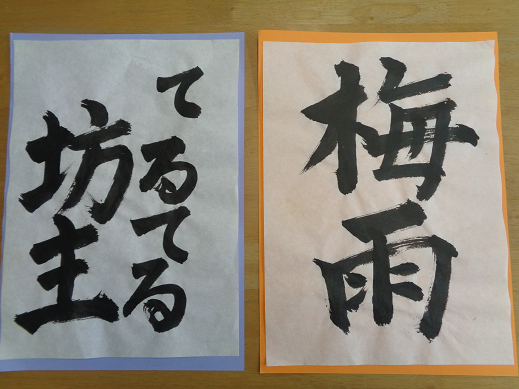 梅雨
てるてる
坊主